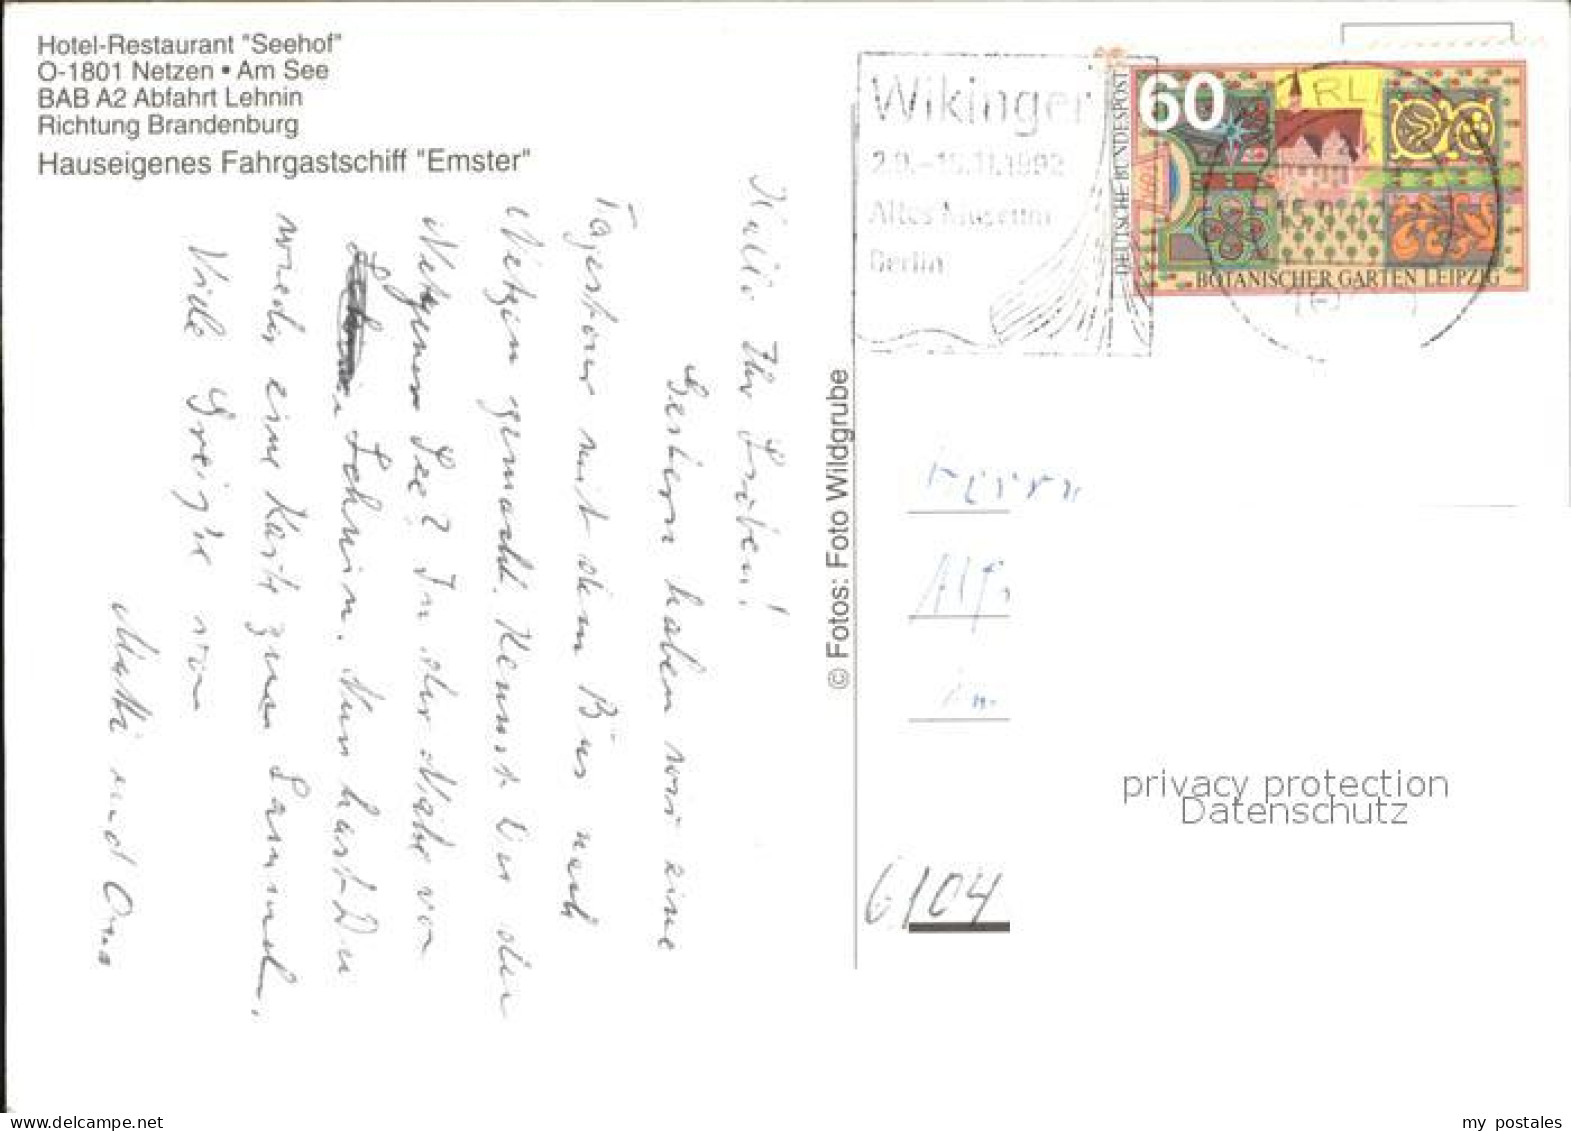 Hotel-Restaurant "Seehof"
O-1801 Netzen • Am See
BAB A2 Abfahrt Lehnin
Richtung Brandenburg
Hauseigenes Fahrgastschiff "Emster"
Hallo Ihr Lieben!
Gestern haben wir eine
Tagestour mit dem Bus nach
Netzen gemacht. Kennst Du den
Netzener See? In der Nähe von
Lehnin. Nun hast Du
wieder eine Karte zum Sammeln.
Viele Grüße von
und Oma
© Fotos: Foto Wildgrube
Wikinger
2.9.-15.11.1992
Altes Museum
Berlin
60
DEUTSCHE BUNDESPOST
BOTANISCHER GARTEN LEIPZIG
Herrn
Alf
6104
privacy protection
Datenschutz
my postales